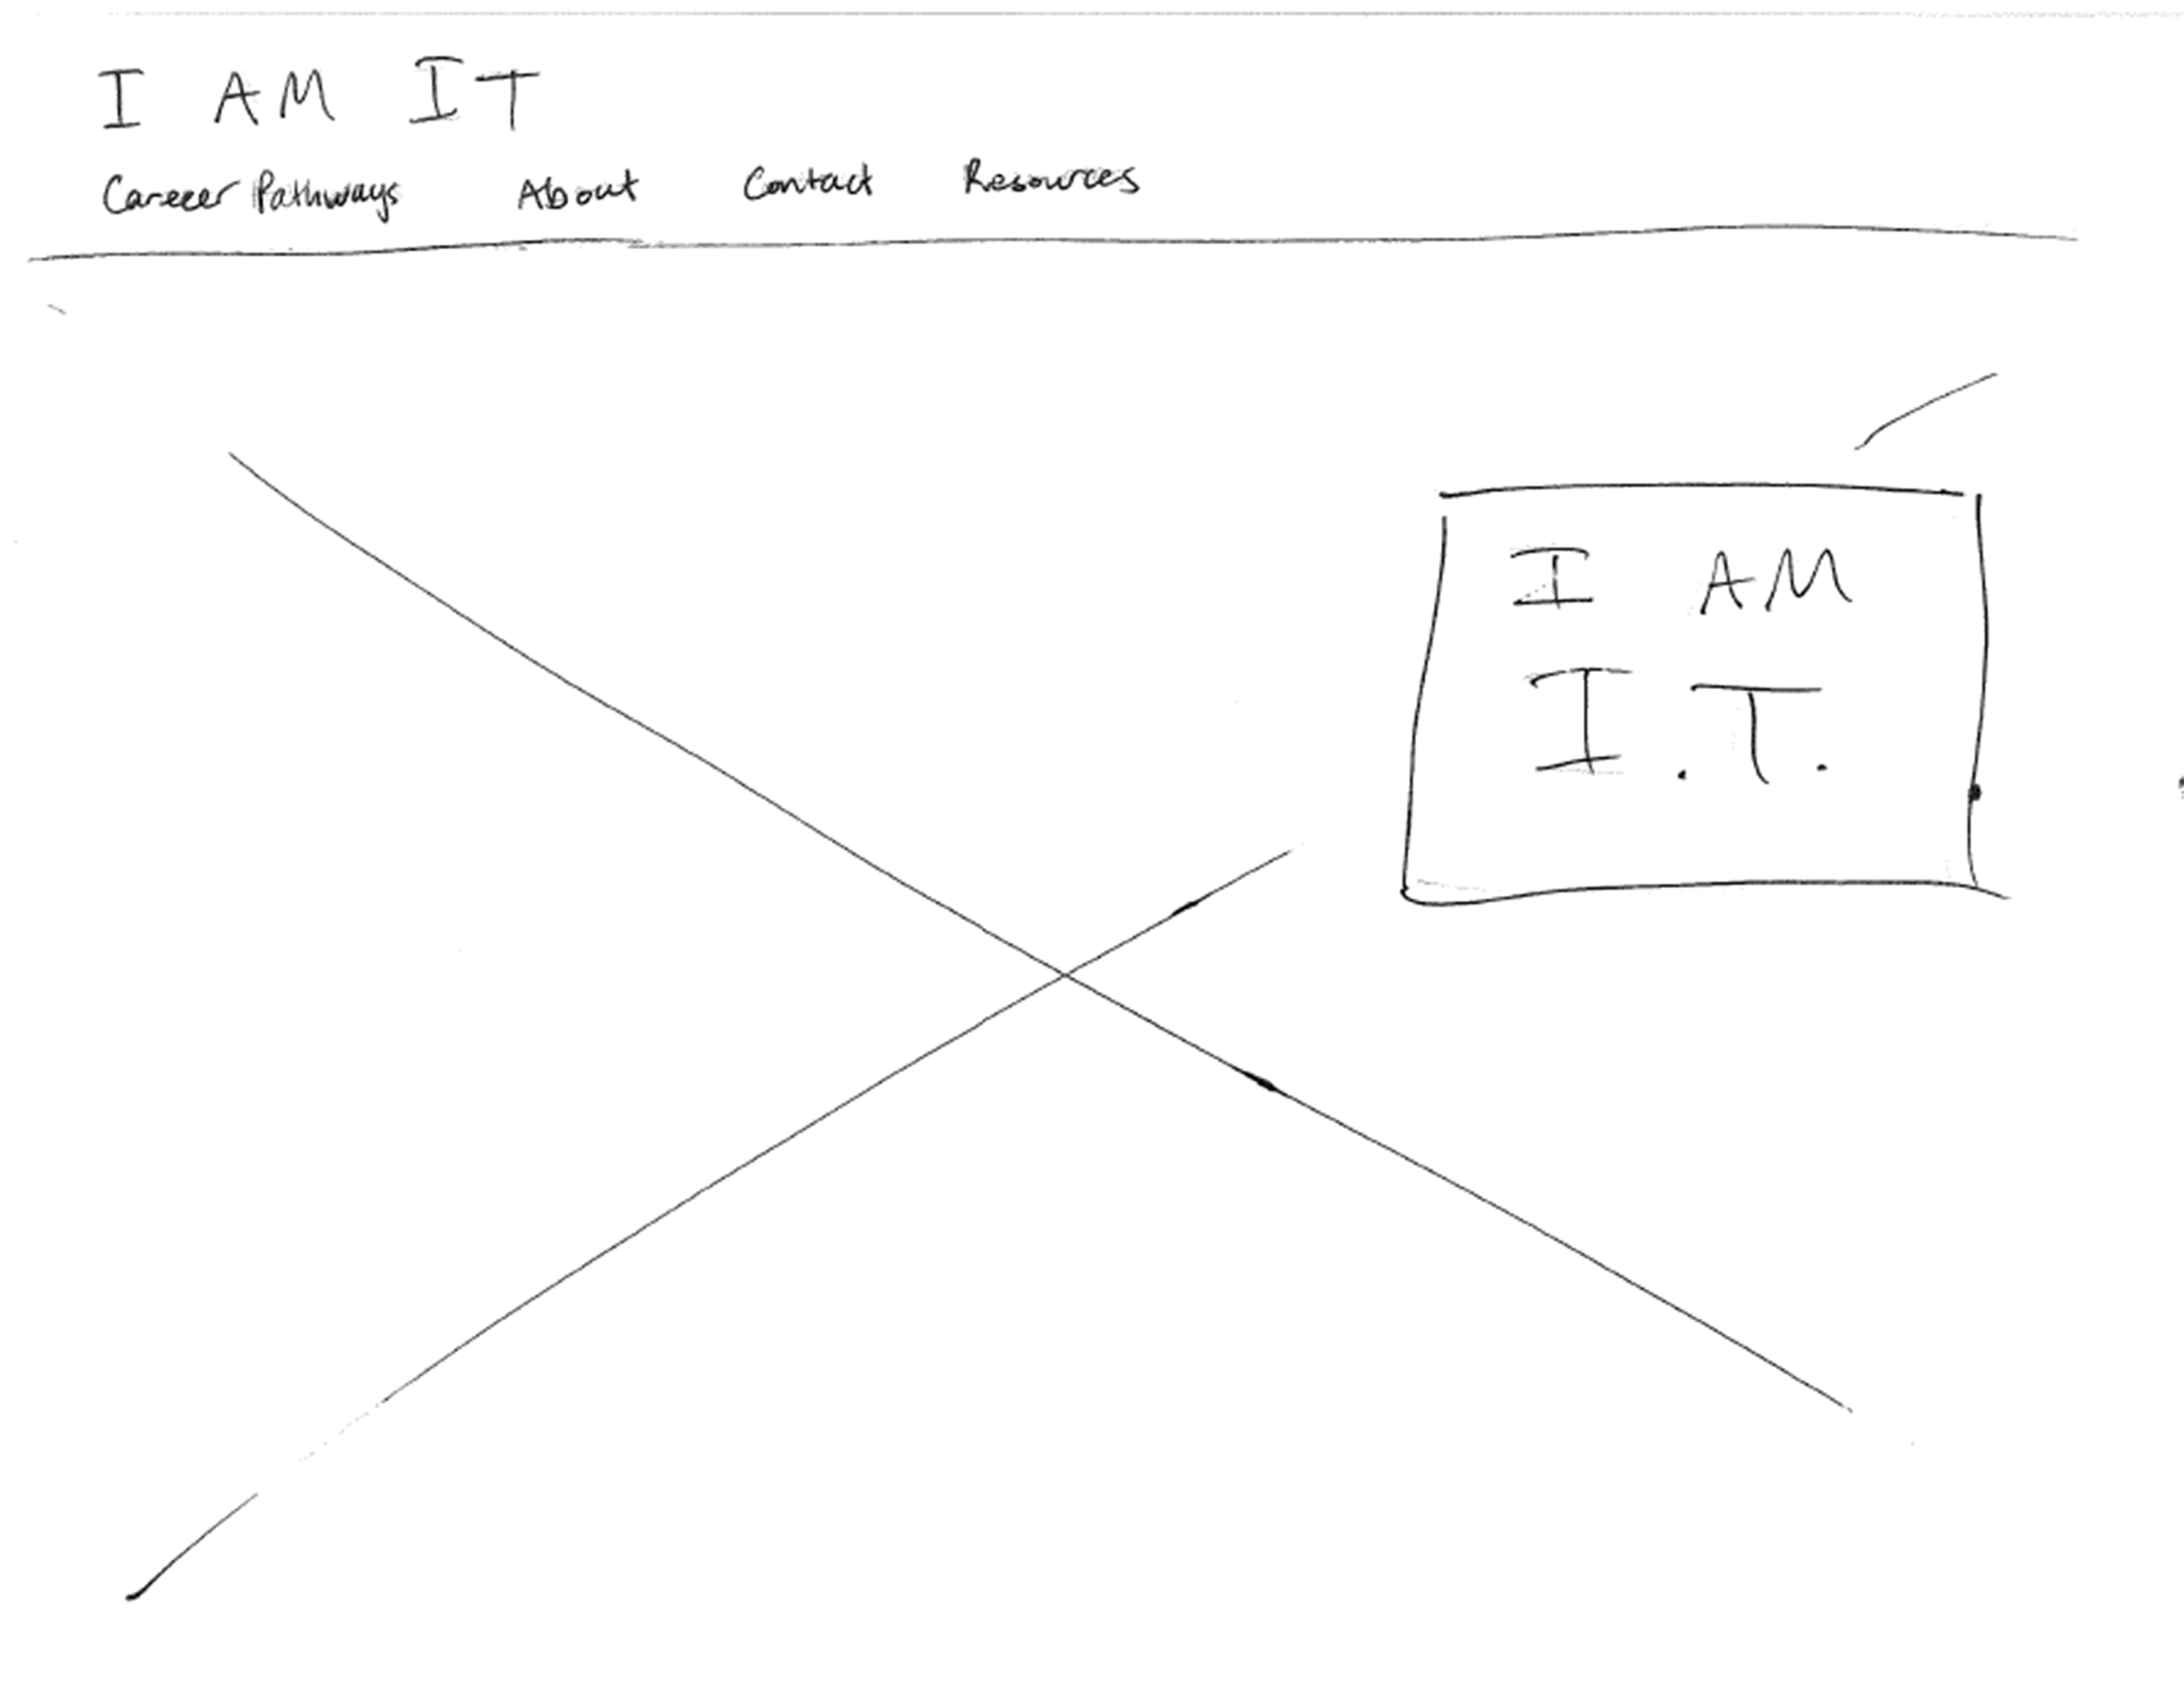 I AM IT
Career Pathways About Contact Resources
I AM
I.T.